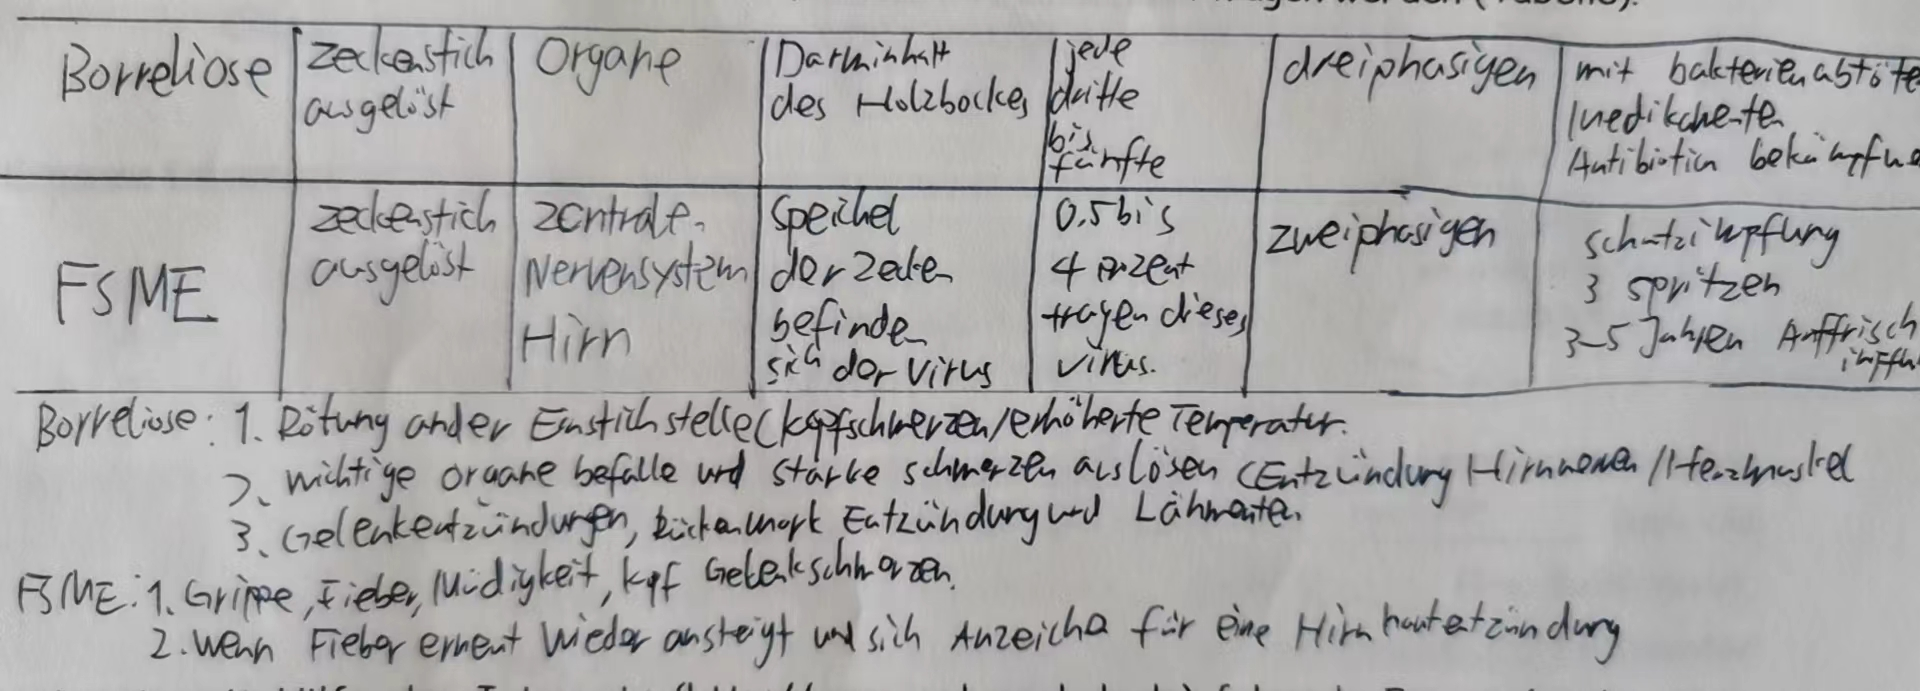 Borreliose
zeckenstich
ausgelöst
Organe
Darminhalt
des Holzbockes
jede
dritte
bis
fünfte
dreiphasigen
mit bakterienabtöte
Medikamente
Antibiotin bekämpfu
FSME
zeckenstich
ausgelöst
zentrale
Nervensystem
Hirn
speichel
der Zecken
befinde
sich der Virus
0,5 bis
4 prozent
tragen dieses
virus.
zweiphasigen
schutzimpfung
3 spritzen
3-5 Jahren Auffrisch
impfu
Borreliose: 1. Rötung an der Einstichstelle (kopfschmerzen/erhöherte Temperatur.
2. wichtige organe befalle und starke schmerzen auslösen (Entzündung Hirnnerven/Herzmuskel
3. Gelenkentzündungen, Rückenmark Entzündung und
FSME: 1. Grippe, Fieber, Müdigkeit, kopf Gelenkschmerzen.
2. wenn Fieber erneut wieder ansteigt und sich Anzeiche für eine Hirnhautentzündung